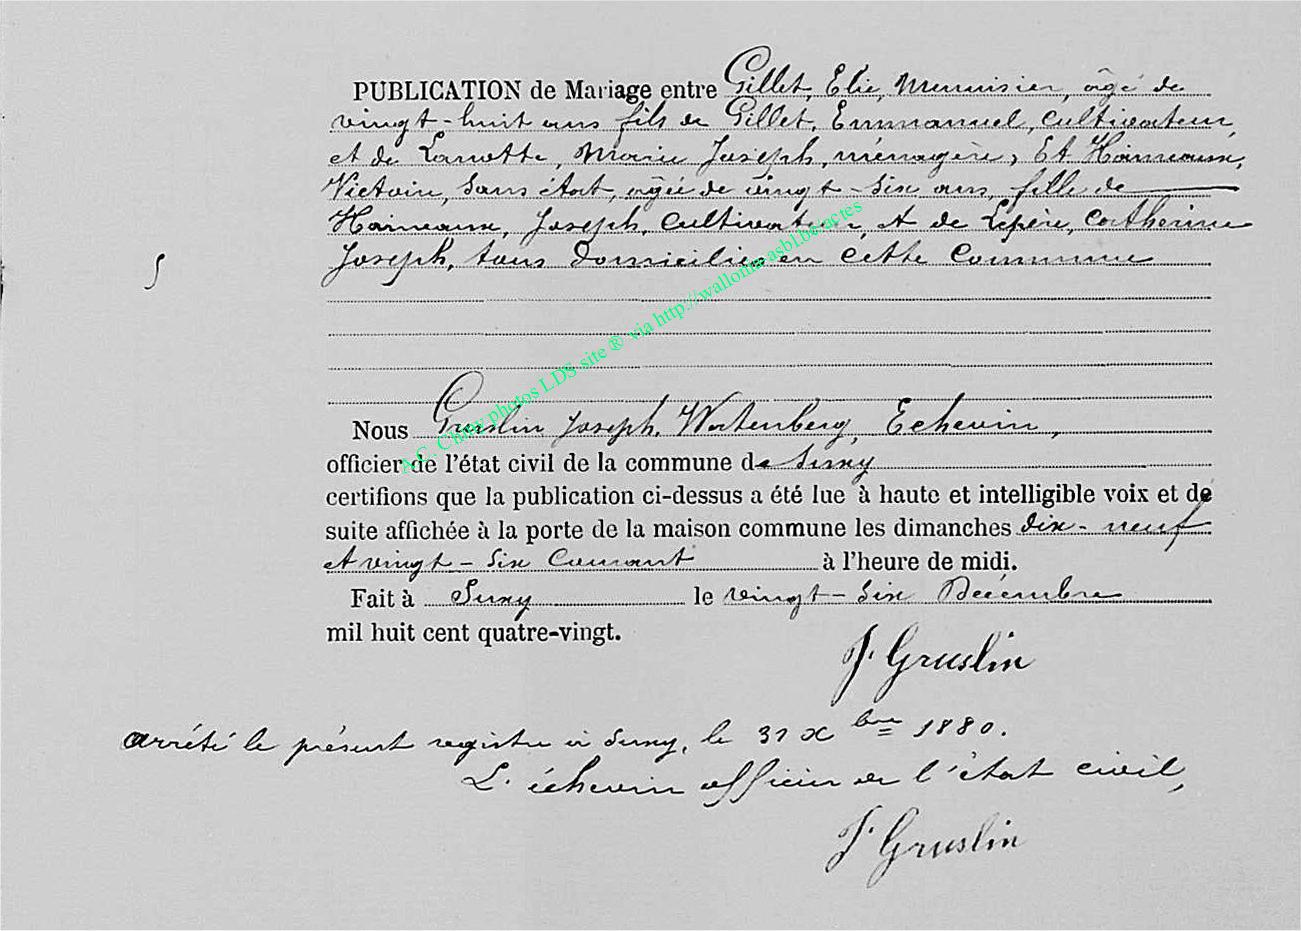 PUBLICATION de Mariage entre Gillet, Elie, Menuisier, âgé de
vingt-huit ans fils de Gillet, Emmanuel, cultivateur,
et de Lamotte, Marie Joseph, ménagère, Et Haineaux,
Victoire, sans état, agée de vingt-six ans, fille de
Haineaux, Joseph, cultivateur, et de Lepère, Catherine
Joseph, tous domiciliés en cette Commune
5
Nous Gruslin Joseph, Watenberg, Echevin,
officier de l'état civil de la commune de Suxy
certifions que la publication ci-dessus a été lue à haute et intelligible voix et de
suite affichée à la porte de la maison commune les dimanches dix-neuf
et vingt-six Courant à l'heure de midi.
Fait à Suxy le vingt-six Décembre
mil huit cent quatre-vingt.
J. Gruslin
arrêté le présent registre à Suxy, le 31 Xbre 1880.
L'échevin officier de l'état civil,
J. Gruslin
A.C. Chiny photos LDS-site ® via http://wallonia-asbl.be/actes